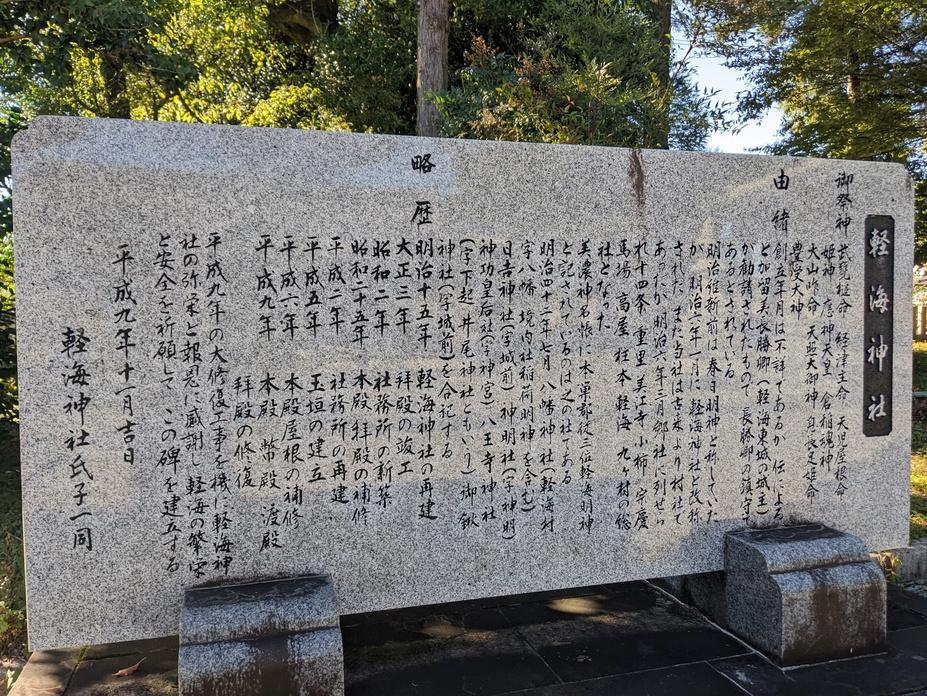 軽海神社
御祭神 武甕槌命 経津主命 天児屋根命
姫神 応神天皇 倉稲魂神
大山咋命 天照大御神 息長足姫命
豊受大神
由緒 創立年月は不詳であるが 伝による
と加留美長勝卿(軽海東城の城主)
が勧請されたもので 長勝卿の鎮守で
あるとされている
明治維新前は春日大明神と称していた
が 明治二年一月に軽海神社と改称
された また当社は古来より村社で
あったが 明治六年三月郷社に列せら
れ 十四条 重里 美江寺 小柿 宗慶
馬場 高屋 柱本 軽海 九ヶ村の総
社となった
美濃神名帳に本巣郡従三位軽海明神
と記されているのは之の社である
明治四十二年七月 八幡神社(軽海村
字八幡 境内社稲荷明神を含む)
日吉神社(字城前) 神明社(字神明)
神功皇后社(字神宮) 八王寺神社
(字下起 井ノ尾神社ともいう) 御鍬
神社(字城前)を合記する
略歴 明治十五年 軽海神社の再建
大正三年 拝殿の竣工
昭和二年 社務所の新築
昭和二十五年 本殿 拝殿の補修
平成二年 社務所の再建
平成五年 玉垣の建立
平成六年 本殿屋根の補修
平成九年 本殿 幣殿 渡殿
拝殿の修復
平成九年の大修復工事を機に軽海神
社の弥栄と報恩に感謝し軽海の繁栄
と安全を祈願して この碑を建立する
平成九年十一月吉日
軽海神社氏子一同